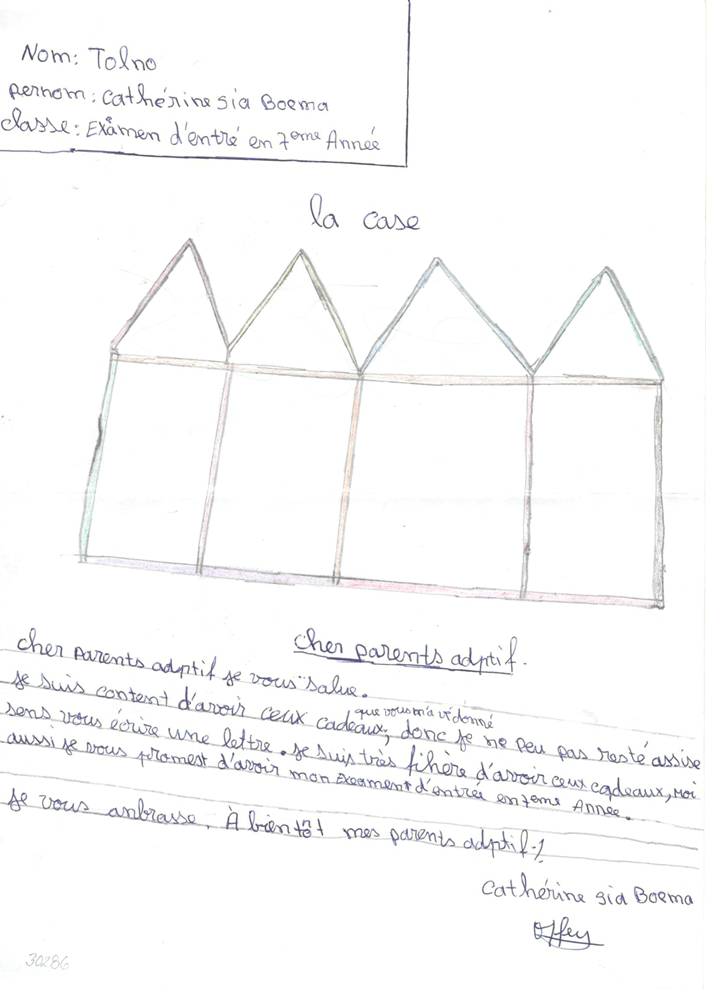 Nom: Tolno
pernom: cathérine sia Boema
classe: Exâmen d'entré en 7eme Année
la case
cher parents adptif.
cher parents adptif je vous salue.
je suis content d'avoir ceux cadeaux, que vous m'avi donné donc je ne peu pas resté assise
sens vous écrire une lettre. je suis très fihère d'avoir ceux cadeaux, moi
aussi je vous promest d'avoir mon Exeament d'entrée en 7eme Année.
je vous anbrasse. À bientôt mes parents adptif.!
cathérine sia Boema
30286